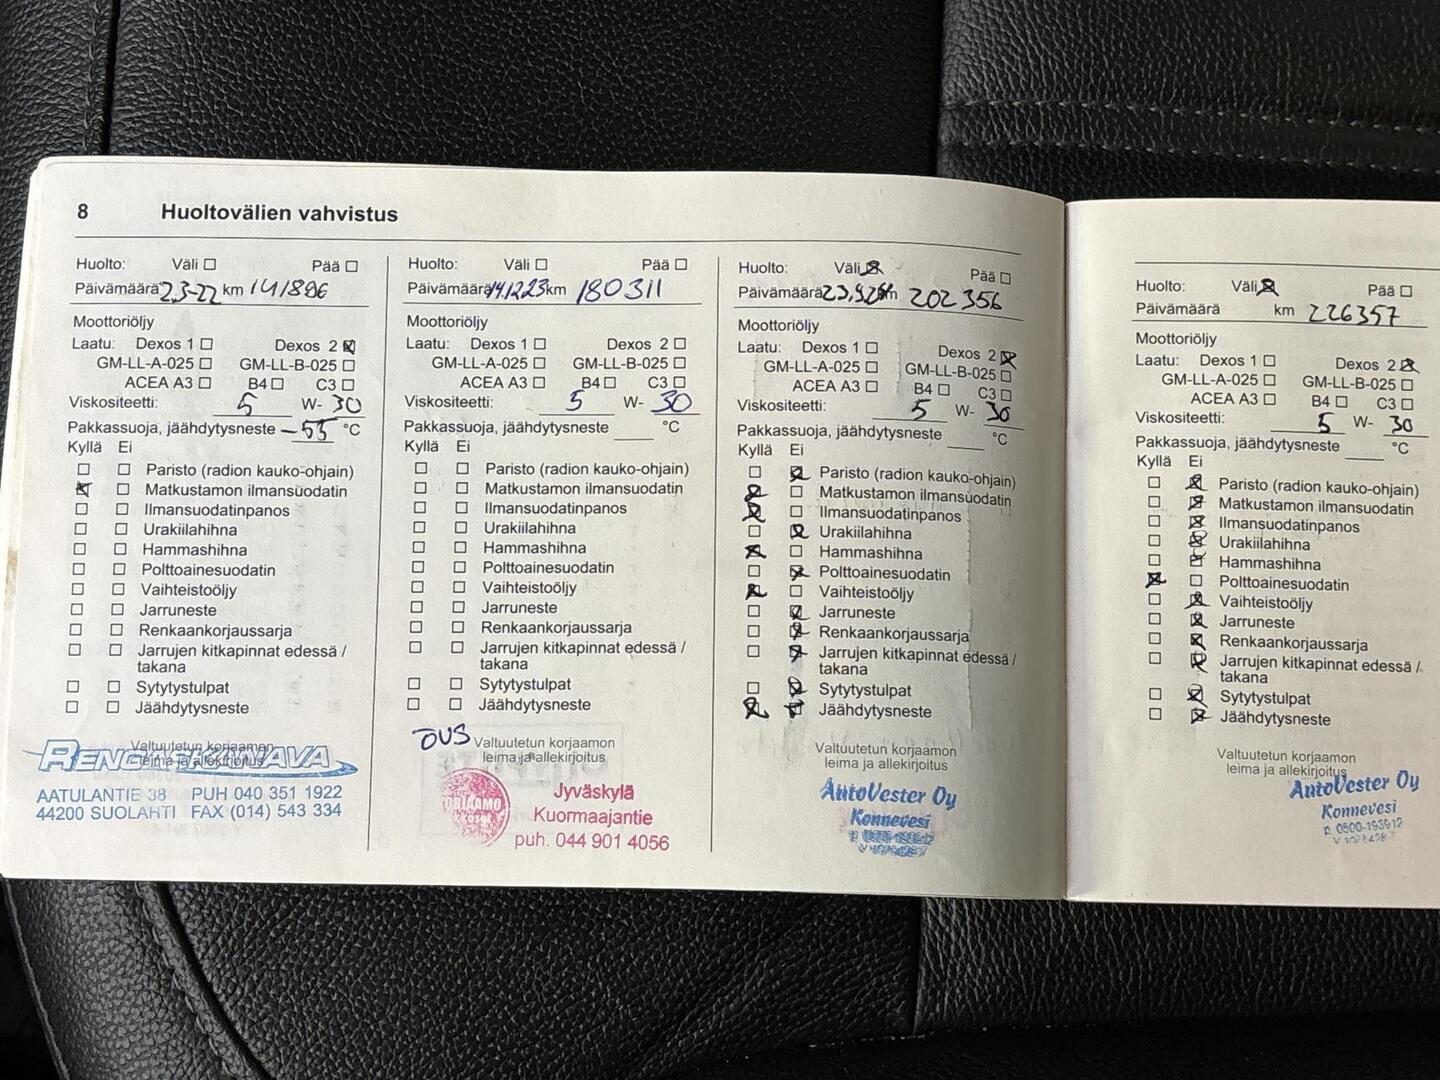 8 Huoltovälien vahvistus
Huolto: Väli ☐ Pää ☐
Päivämäärä 2,3-22 km 141896
Moottoriöljy
Laatu: Dexos 1 ☐ Dexos 2 ☒
GM-LL-A-025 ☐ GM-LL-B-025 ☐
ACEA A3 ☐ B4 ☐ C3 ☐
Viskositeetti: 5 W- 30
Pakkassuoja, jäähdytysneste -55 °C
Kyllä Ei
☐ ☐ Paristo (radion kauko-ohjain)
☒ ☐ Matkustamon ilmansuodatin
☐ ☐ Ilmansuodatinpanos
☐ ☐ Urakiilahihna
☐ ☐ Hammashihna
☐ ☐ Polttoainesuodatin
☐ ☐ Vaihteistoöljy
☐ ☐ Jarruneste
☐ ☐ Renkaankorjaussarja
☐ ☐ Jarrujen kitkapinnat edessä /
takana
☐ ☐ Sytytystulpat
☐ ☐ Jäähdytysneste
Valtuutetun korjaamon
leima ja allekirjoitus
RENGASKANAVA
AATULANTIE 38 PUH 040 351 1922
44200 SUOLAHTI FAX (014) 543 334
Huolto: Väli ☐ Pää ☐
Päivämäärä 14.12.23 km 180311
Moottoriöljy
Laatu: Dexos 1 ☐ Dexos 2 ☐
GM-LL-A-025 ☐ GM-LL-B-025 ☐
ACEA A3 ☐ B4 ☐ C3 ☐
Viskositeetti: 5 W- 30
Pakkassuoja, jäähdytysneste °C
Kyllä Ei
☐ ☐ Paristo (radion kauko-ohjain)
☐ ☐ Matkustamon ilmansuodatin
☐ ☐ Ilmansuodatinpanos
☐ ☐ Urakiilahihna
☐ ☐ Hammashihna
☐ ☐ Polttoainesuodatin
☐ ☐ Vaihteistoöljy
☐ ☐ Jarruneste
☐ ☐ Renkaankorjaussarja
☐ ☐ Jarrujen kitkapinnat edessä /
takana
☐ ☐ Sytytystulpat
☐ ☐ Jäähdytysneste
Valtuutetun korjaamon
leima ja allekirjoitus
Jyväskylä
Kuormaajantie
puh. 044 901 4056
Huolto: Väli ☒ Pää ☐
Päivämäärä km 202356
Moottoriöljy
Laatu: Dexos 1 ☐ Dexos 2 ☒
GM-LL-A-025 ☐ GM-LL-B-025 ☐
ACEA A3 ☐ B4 ☐ C3 ☐
Viskositeetti: 5 W- 30
Pakkassuoja, jäähdytysneste °C
Kyllä Ei
☐ ☒ Paristo (radion kauko-ohjain)
☒ ☐ Matkustamon ilmansuodatin
☒ ☐ Ilmansuodatinpanos
☐ ☒ Urakiilahihna
☒ ☐ Hammashihna
☐ ☒ Polttoainesuodatin
☒ ☐ Vaihteistoöljy
☐ ☒ Jarruneste
☐ ☒ Renkaankorjaussarja
☐ ☒ Jarrujen kitkapinnat edessä /
takana
☐ ☒ Sytytystulpat
☒ ☒ Jäähdytysneste
Valtuutetun korjaamon
leima ja allekirjoitus
AutoVester Oy
Konnevesi
Huolto: Väli ☒ Pää ☐
Päivämäärä km 226357
Moottoriöljy
Laatu: Dexos 1 ☐ Dexos 2 ☒
GM-LL-A-025 ☐ GM-LL-B-025 ☐
ACEA A3 ☐ B4 ☐ C3 ☐
Viskositeetti: 5 W- 30
Pakkassuoja, jäähdytysneste °C
Kyllä Ei
☐ ☒ Paristo (radion kauko-ohjain)
☐ ☒ Matkustamon ilmansuodatin
☐ ☒ Ilmansuodatinpanos
☐ ☒ Urakiilahihna
☐ ☒ Hammashihna
☒ ☐ Polttoainesuodatin
☐ ☒ Vaihteistoöljy
☐ ☒ Jarruneste
☐ ☒ Renkaankorjaussarja
☐ ☒ Jarrujen kitkapinnat edessä /
takana
☐ ☒ Sytytystulpat
☐ ☒ Jäähdytysneste
Valtuutetun korjaamon
leima ja allekirjoitus
AutoVester Oy
Konnevesi